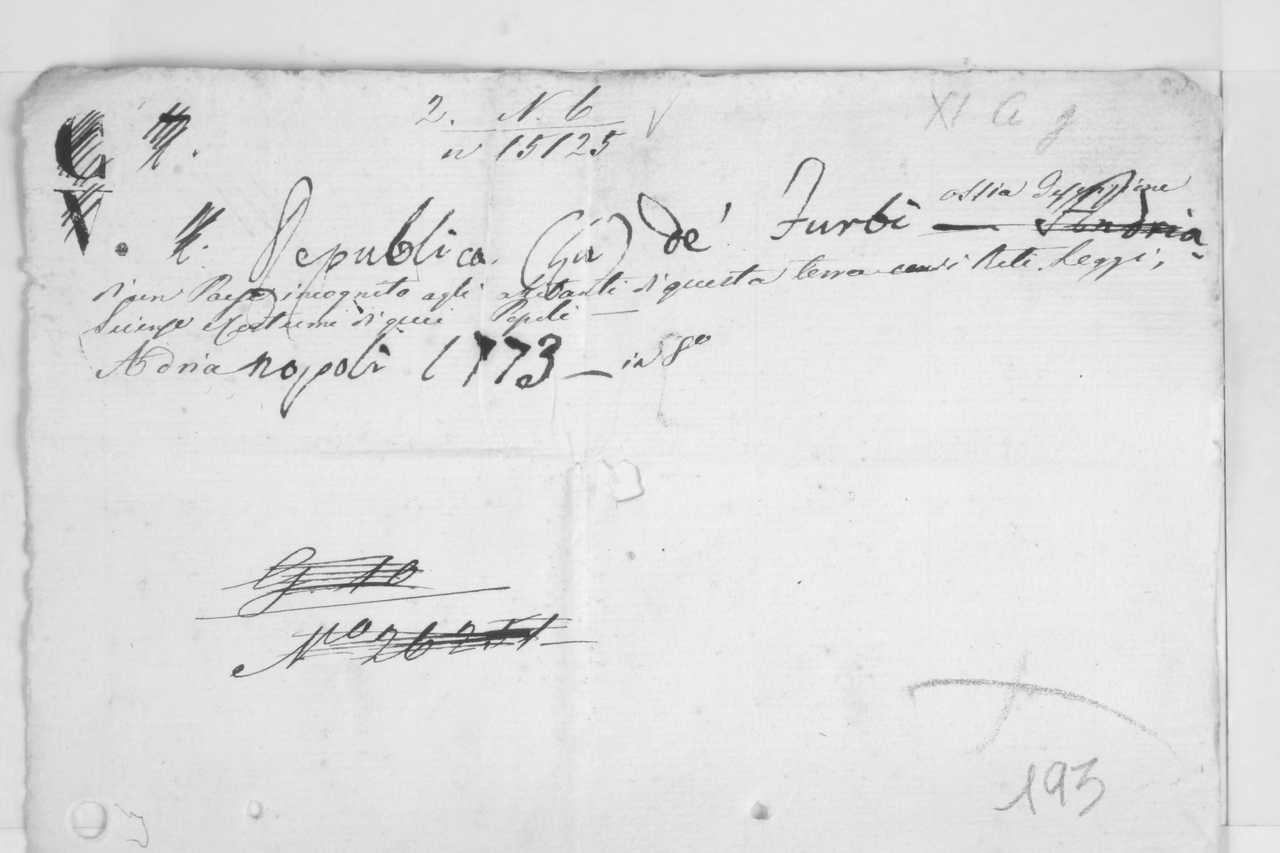 2. N. 6
n 15125
XI A g
Republica (La) de' Furbi — ossia Descrizione
di un Paese incognito agli abitanti di questa terra i Riti, Leggi,
Scienze e Costumi di quei Popoli —
Adrianopoli 1773 — in 8º
G. 10
Nro 26251
193